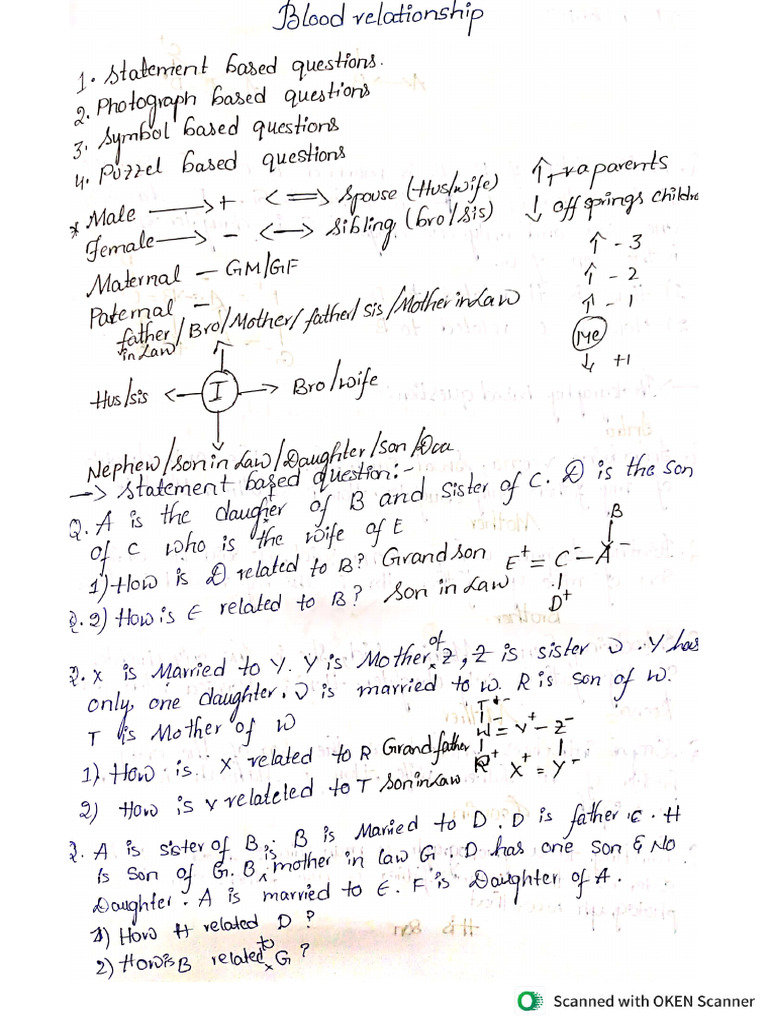 Blood relationship
1. Statement based questions.
2. Photograph based questions
3. Symbol based questions
4. Puzzel based questions
* Male ⟶ + <=> Spouse (Hus/wife)
Female ⟶ - <-> Sibling (bro/sis)
↑ parents
↓ off springs childre
↑ - 3
↑ - 2
↑ - 1
Me
↓ +1
Maternal - GM/GF
Paternal -
father in Law / Bro/Mother/father/sis/Mother in Law
Hus/sis ← I → Bro/wife
Nephew/son in Law/Daughter/son/
-> Statement based question:-
Q. A is the daugher of B and sister of C. D is the son
of C who is the wife of E
1) How is D related to B? Grand son
Q.2) How is E related to B? Son in Law
B
E+ = C- - A-
D+
Q. X is Married to Y. Y is Mother of Z, Z is sister V. Y has
only one daughter. V is married to W. R is son of W.
T is Mother of W
1) How is X related to R Grand father
2) How is v relateted to T Son in Law
T-
W- = V+ - Z-
R+ X+ = Y-
Q. A is sister of B. B is Maried to D. D is father C. H
is Son of G. B is mother in law G. D has one son & No
Daughter. A is married to E. F is Daughter of A.
1) How H related D?
2) How is B related to G?
Scanned with OKEN Scanner